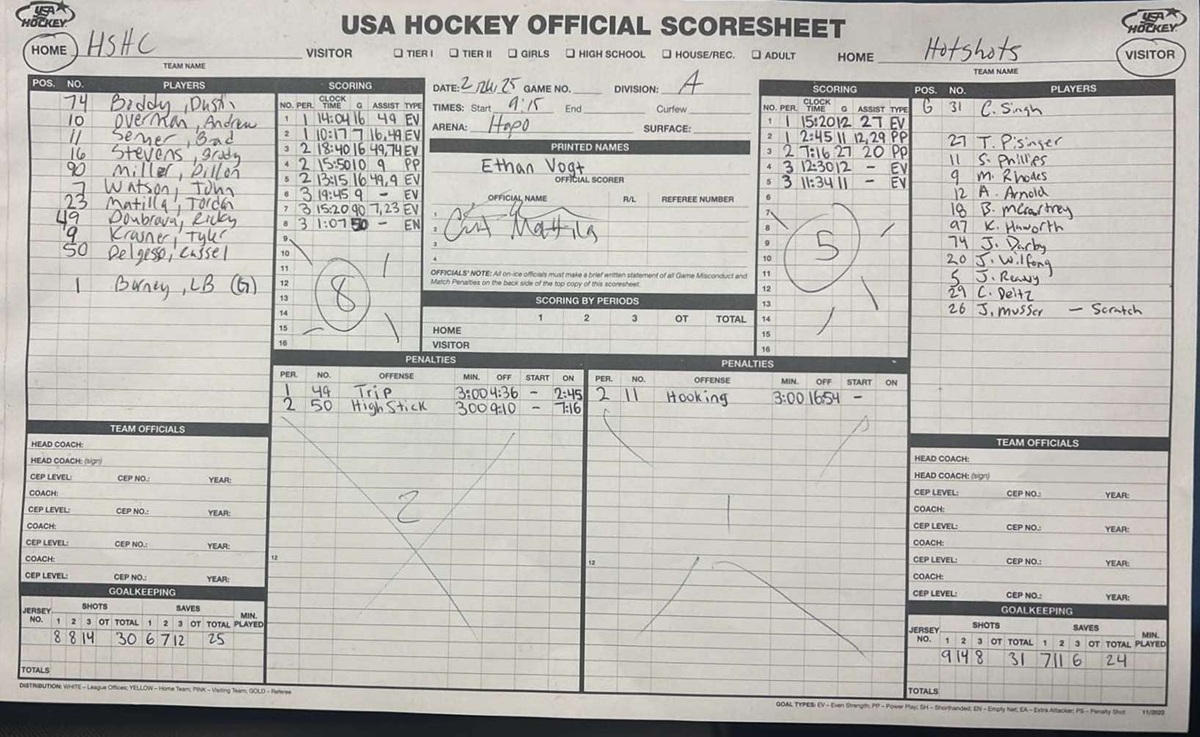 USA HOCKEY
USA HOCKEY OFFICIAL SCORESHEET
USA HOCKEY
HOME HSHC VISITOR ☐ TIER I ☐ TIER II ☐ GIRLS ☐ HIGH SCHOOL ☐ HOUSE/REC. ☐ ADULT HOME Hotshots VISITOR
TEAM NAME
TEAM NAME
POS. NO. PLAYERS
74 Boddy, Dustin
10 Overman, Andrew
11 Semer, Brad
16 Stevens, Brody
90 Miller, Dillon
7 Watson, John
23 Matilla, Jordan
49 Doubrava, Ricky
9 Krasner, Tyler
50 Delgesso, Cassel
1 Barney, LB (G)
SCORING
NO. PER. CLOCK TIME G ASSIST TYPE
1 1 14:04 16 49 EV
2 1 10:17 7 16,49 EV
3 2 18:40 16 49,74 EV
4 2 15:50 10 9 PP
5 2 13:15 16 49,9 EV
6 3 19:45 9 - EV
7 3 15:20 90 7,23 EV
8 3 1:07 50 - EN
9
10
11
12
13
14
15
16
8
DATE: 2 /24/ 25 GAME NO. DIVISION: A
TIMES: Start 9:15 End Curfew
ARENA: Hapo SURFACE:
PRINTED NAMES
Ethan Vogt
OFFICIAL SCORER
OFFICIAL NAME R/L REFEREE NUMBER
1
2 Mattila
3
4
OFFICIALS' NOTE: All on-ice officials must make a brief written statement of all Game Misconduct and
Match Penalties on the back side of the top copy of this scoresheet.
SCORING BY PERIODS
1 2 3 OT TOTAL
HOME
VISITOR
SCORING
NO. PER. CLOCK TIME G ASSIST TYPE
1 1 15:20 12 27 EV
2 1 2:45 11 12,29 PP
3 2 7:16 27 20 PP
4 3 12:30 12 - EV
5 3 11:34 11 - EV
6
7
8
9
10
11
12
13
14
15
16
5
POS. NO. PLAYERS
G 31 C. Singh
27 T. Pisinger
11 S. Phillies
9 M. Rhodes
12 A. Arnold
18 B. McCartney
97 K. Haworth
74 J. Darby
20 J. Wilfong
5 J. Reavy
29 C. Deitz
26 J. Musser - Scratch
PENALTIES
PER. NO. OFFENSE MIN. OFF START ON
1 49 Trip 3:00 4:36 - 2:45
2 50 High Stick 300 9:10 - 7:16
2
12
PENALTIES
PER. NO. OFFENSE MIN. OFF START ON
2 11 Hooking 3:00 16:54 -
1
12
TEAM OFFICIALS
HEAD COACH:
HEAD COACH: (sign)
CEP LEVEL: CEP NO.: YEAR:
COACH:
CEP LEVEL: CEP NO.: YEAR:
COACH:
CEP LEVEL: CEP NO.: YEAR:
COACH:
CEP LEVEL: CEP NO.: YEAR:
GOALKEEPING
JERSEY NO. SHOTS 1 2 3 OT TOTAL SAVES 1 2 3 OT TOTAL MIN. PLAYED
8 8 14 30 6 7 12 25
TOTALS
TEAM OFFICIALS
HEAD COACH:
HEAD COACH: (sign)
CEP LEVEL: CEP NO.: YEAR:
COACH:
CEP LEVEL: CEP NO.: YEAR:
COACH:
CEP LEVEL: CEP NO.: YEAR:
COACH:
CEP LEVEL: CEP NO.: YEAR:
GOALKEEPING
JERSEY NO. SHOTS 1 2 3 OT TOTAL SAVES 1 2 3 OT TOTAL MIN. PLAYED
9 14 8 31 7 11 6 24
TOTALS
DISTRIBUTION: WHITE – League Offices; YELLOW – Home Team; PINK – Visiting Team; GOLD – Referee
GOAL TYPES: EV – Even Strength; PP – Power Play; SH – Shorthanded; EN – Empty Net; EA – Extra Attacker; PS – Penalty Shot 11/2022